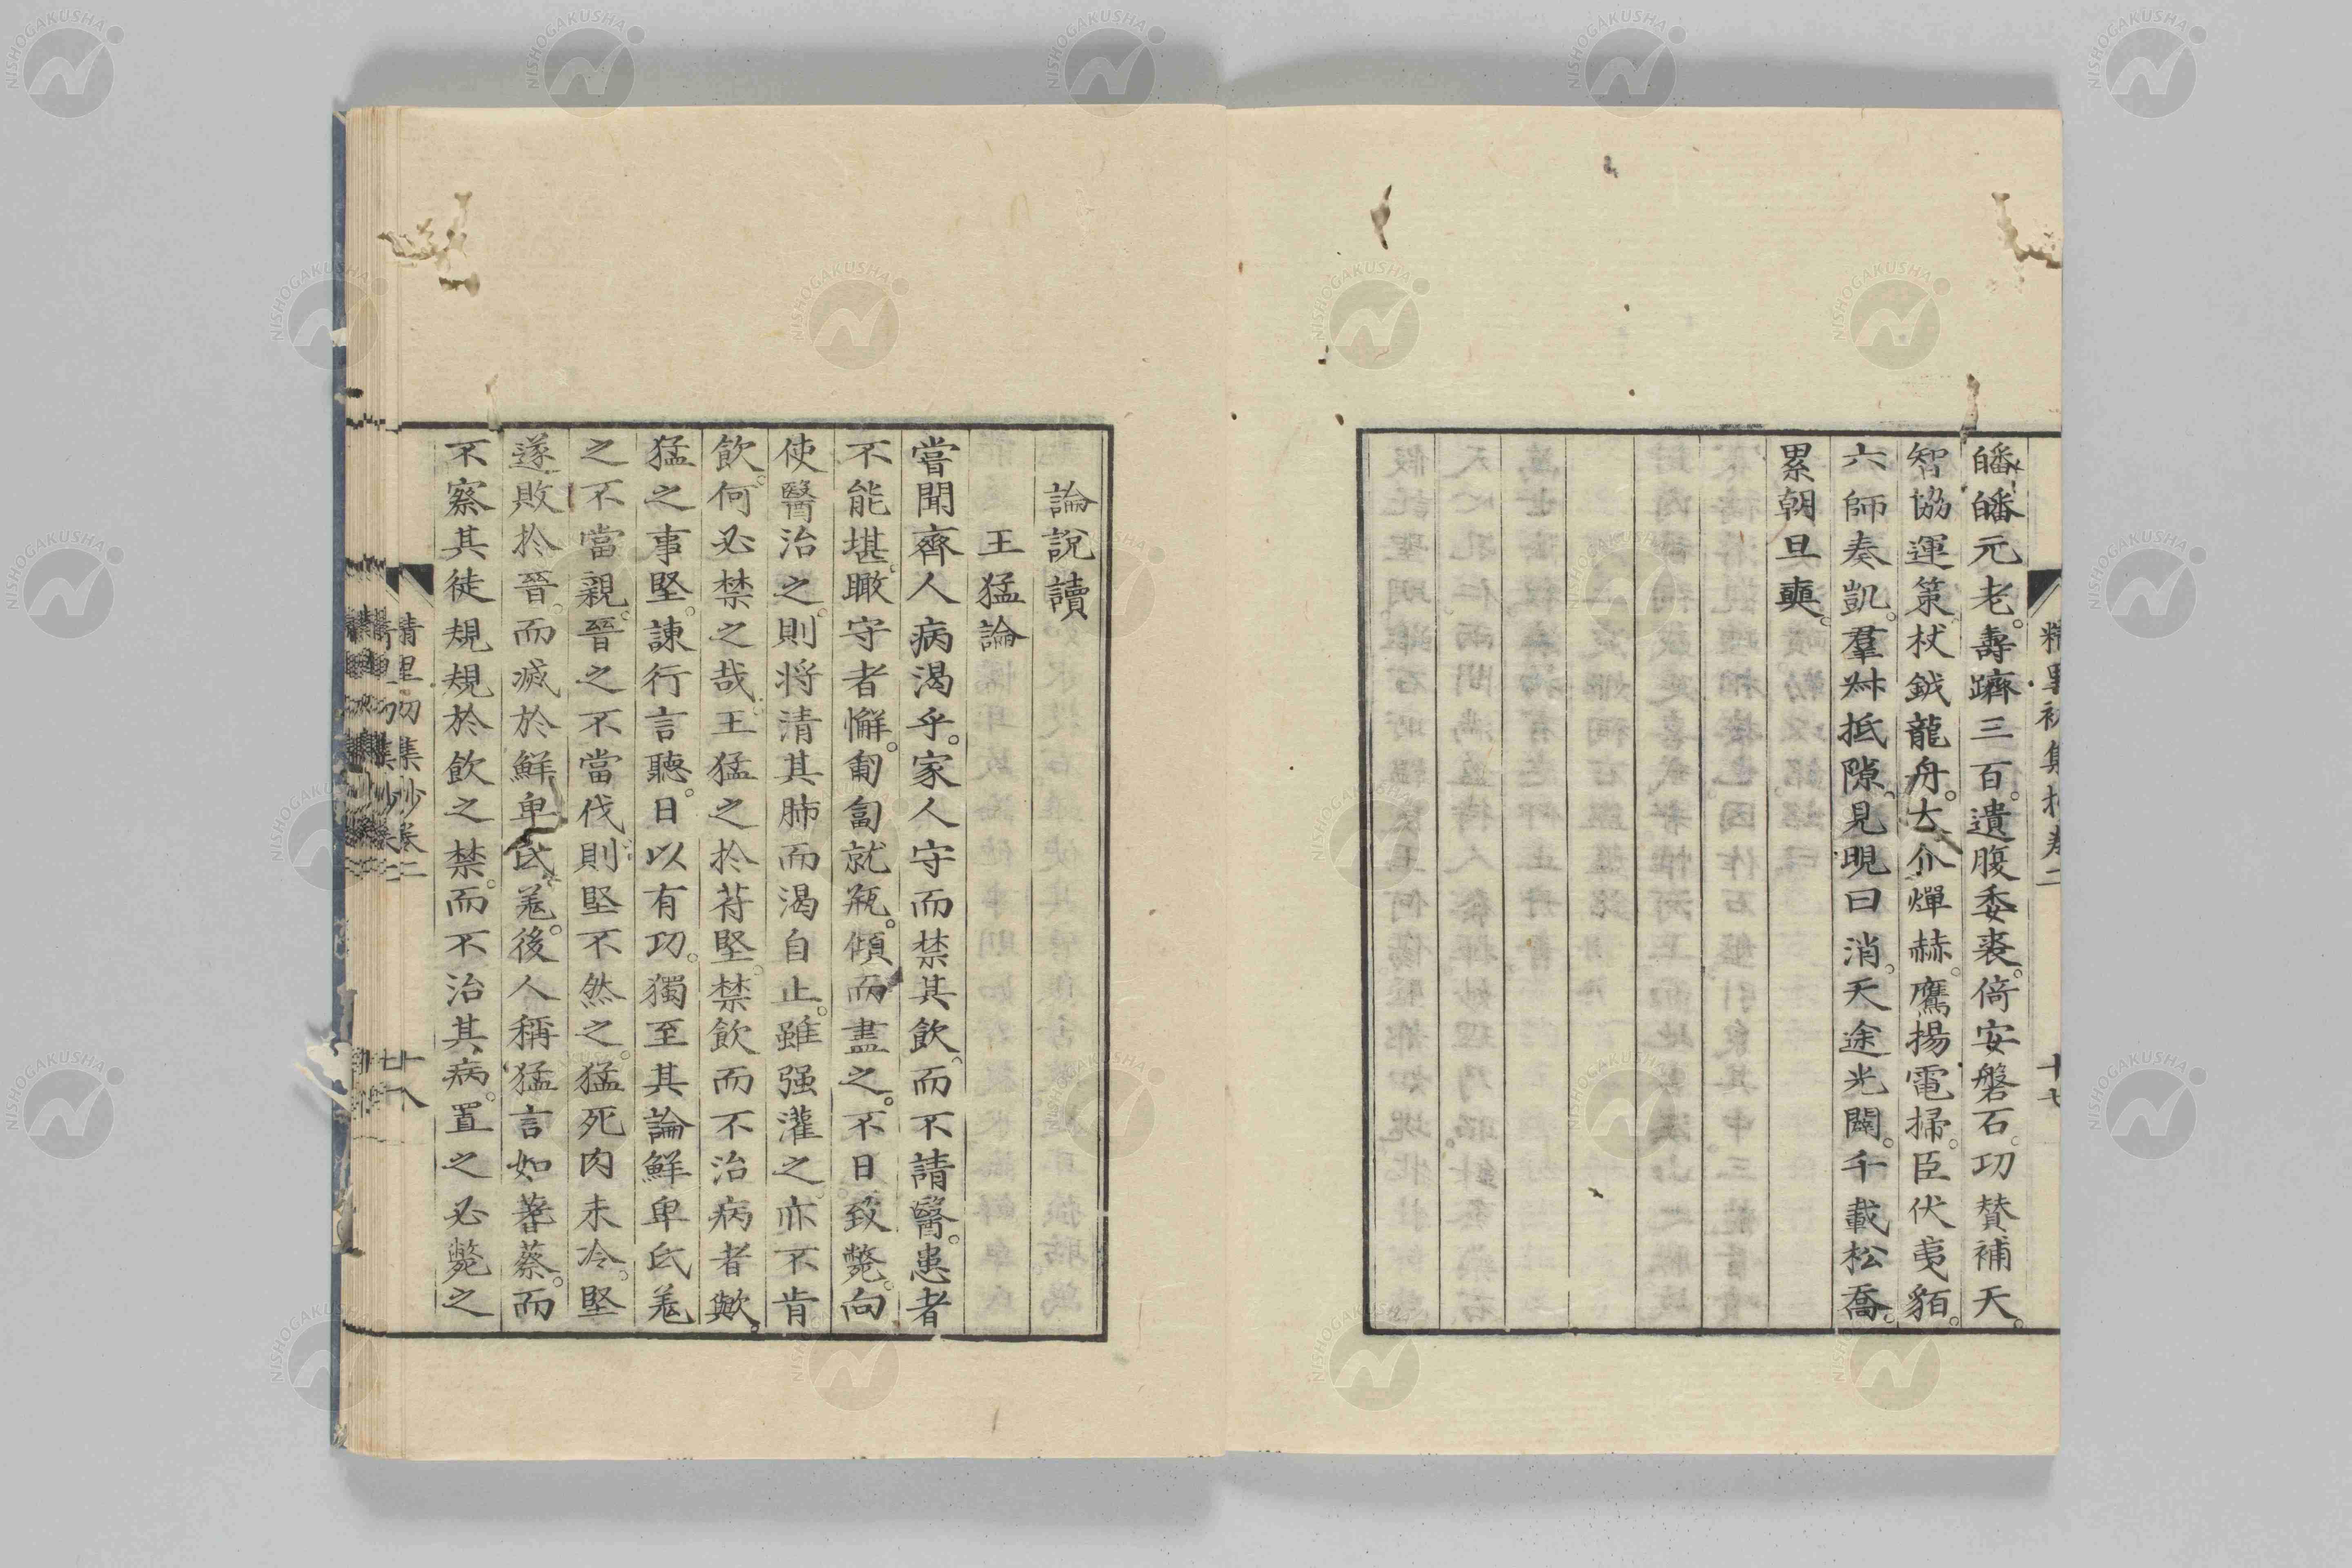 精里初集抄卷二
十七
皤皤元老。壽躋三百。遺腹委裘。倚安磐石。功賛補天。
智協運策。杖鉞龍舟。大介燀赫。鷹揚電掃。臣伏夷貊。
六師奏凱。羣舛抵隙。見晛曰消。天途光闢。千載松喬。
累朝旦奭。
論說讀
王猛論
嘗聞齊人病渴乎。家人守而禁其飲。而不請醫。患者
不能堪。瞰守者懈。匍匐就瓶。傾而盡之。不日致斃。向
使醫治之。則將清其肺而渴自止。雖强灌之。亦不肯
飲。何必禁之哉。王猛之於苻堅。禁飲而不治病者歟。
猛之事堅。諫行言聽。日以有功。獨至其論鮮卑氐羗
之不當親。晉之不當伐。則堅不然之。猛死肉未冷。堅
遂敗於晉。而滅於鮮卑氐羗。後人稱猛言如蓍蔡。而
不察其徒規規於飲之禁。而不治其病。置之必斃之
精里初集抄卷二
廿八
NISHOGAKUSHA